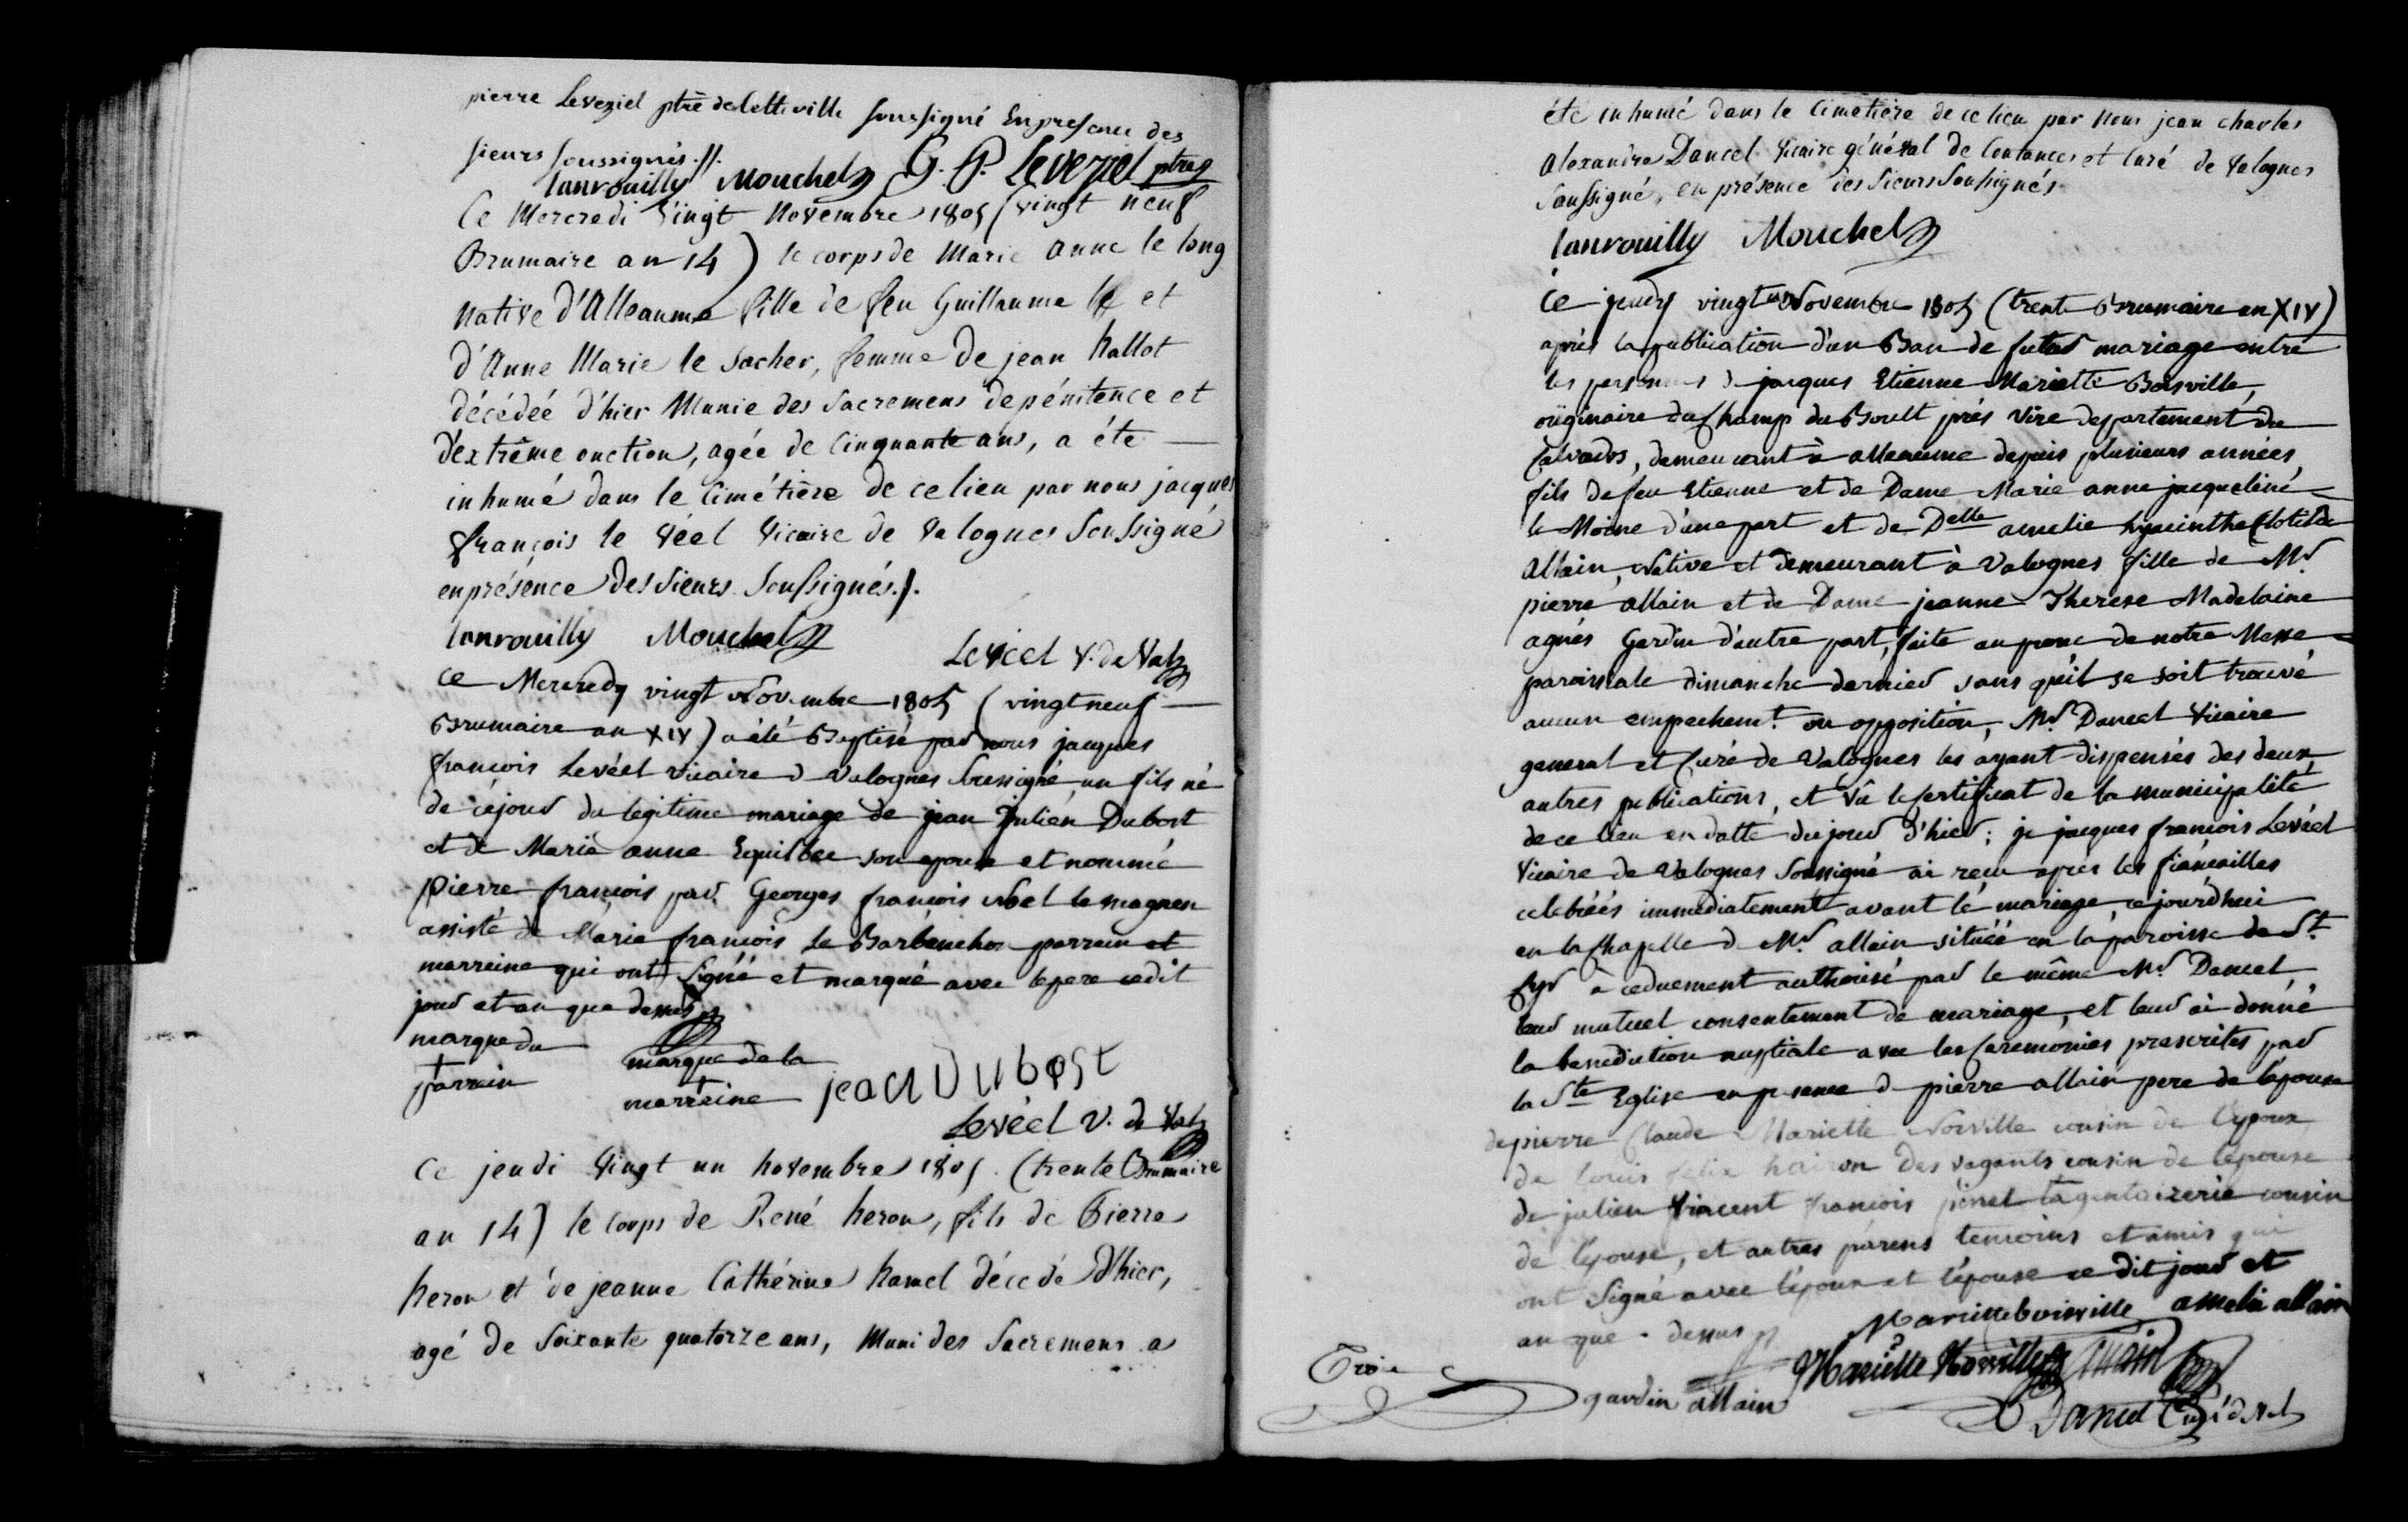 pierre Leveziel ptre de cette ville soussigné En presence des
sieurs soussignés .//.
lanrouilly Mouchel G. P. Leveziel ptre
Ce Mercredi Vingt Novembre 1805 (vingt neuf
Brumaire an 14) le corps de Marie Anne le long
Native d'Alleaume fille de feu Guillaume et
d'Anne Marie le Sacher, femme de jean hallot
décédée d'hier Munie des Sacremens de pénitence et
d'extrême onction, agée de Cinquante ans, a éte
inhumé dans le Cimétière de ce lieu par nous jacques
françois le Véel Vicaire de Valognes Soussigné
en présence des Sieurs Soussignés ./.
lanrouilly Mouchel Levéel V. de Val
Ce Mercredy vingt Novembre 1805 (vingt neuf
Brumaire an XIV) a été Baptisé par nous jacques
françois Levéel vicaire d Valognes Soussigné un fils né
de cejour du legitime mariage de jean Julien Dubost
et de Marie anne Equilbec son epouse et nommé
pierre françois par Georges françois Noel le magnen
assisté de Marie françois Le Barbenchon parrein et
marreine qui ont Signé et marqué avec le pere cedit
jour et an que dessus
marque du
+
parrein
marque de la
+
marreine
jean Dubost
Levéel V. de Val
Ce jeudi Vingt un novembre 1805. (trente Brumaire
an 14) le Corps de René heron, fils de Pierre
heron et de jeanne Cathérine hamel décedé D'hier,
agé de Soixante quatorze ans, Muni des Sacremens a
éte inhumé dans le Cimetière de ce lieu par Nous jean charles
Alexandre Dancel Vicaire général de Coutances et Curé de Valognes
Soussigné, en présence des Sieurs Soussignés
lanrouilly Mouchel
Ce jeudy vingt un Novembre 1805 (trente Brumaire an XIV)
après la publication d'un Ban de futur mariage entre
les personnes d jacques Etienne Mariette Boisville,
originaire du Champ du Boult près Vire departement du
Calvados, demeurant à alleaume depuis plusieurs années,
fils de feu Etienne et de Dame Marie anne jacqueline
le Moine d'une part et de Delle amelie hyacinthe Clotilde
Allain, Native et demeurant à Valognes fille de Mr
pierre allain et de Dame jeanne Therese Madelaine
agnés Gardin d'autre part, faite au prone de notre Messe
paroissiale dimanche dernier sans qu'il se soit trouvé
aucun empechemt. ou opposition, Mr. Dancel Vicaire
general et Curé de Valognes les ayant dispensés des deux
autres publications, et Vû le Certificat de la municipalité
de ce lieu en datte du jour d'hier: je jacques françois Levéel
Vicaire de Valognes Soussigné ai reçu après les fiançailles
celebréés immediatement avant le mariage ce jourd'hui
en la Chapelle d Mr allain située en la paroisse de St.
Cyr à ce duement authorisé par le même Mr Dancel
leur mutuel consentement de mariage, et leur ai donné
la benediction nuptiale avec les Ceremonies prescrites par
la Ste Eglise en presence d pierre allain pere de l'epouse
de pierre Claude Mariette Norville cousin de l'epoux
de louis felix hairon Des vagants cousin de l'epouse
de julien Vincent françois pinel la cousin
de l'epouse, et autres parens temoins et amis qui
ont Signé avec l'epoux et l'epouse ce dit jour et
an que dessus
Mariette boisville amelie allain
Mariette Norville
gardin allain
Dancel Curé de Val